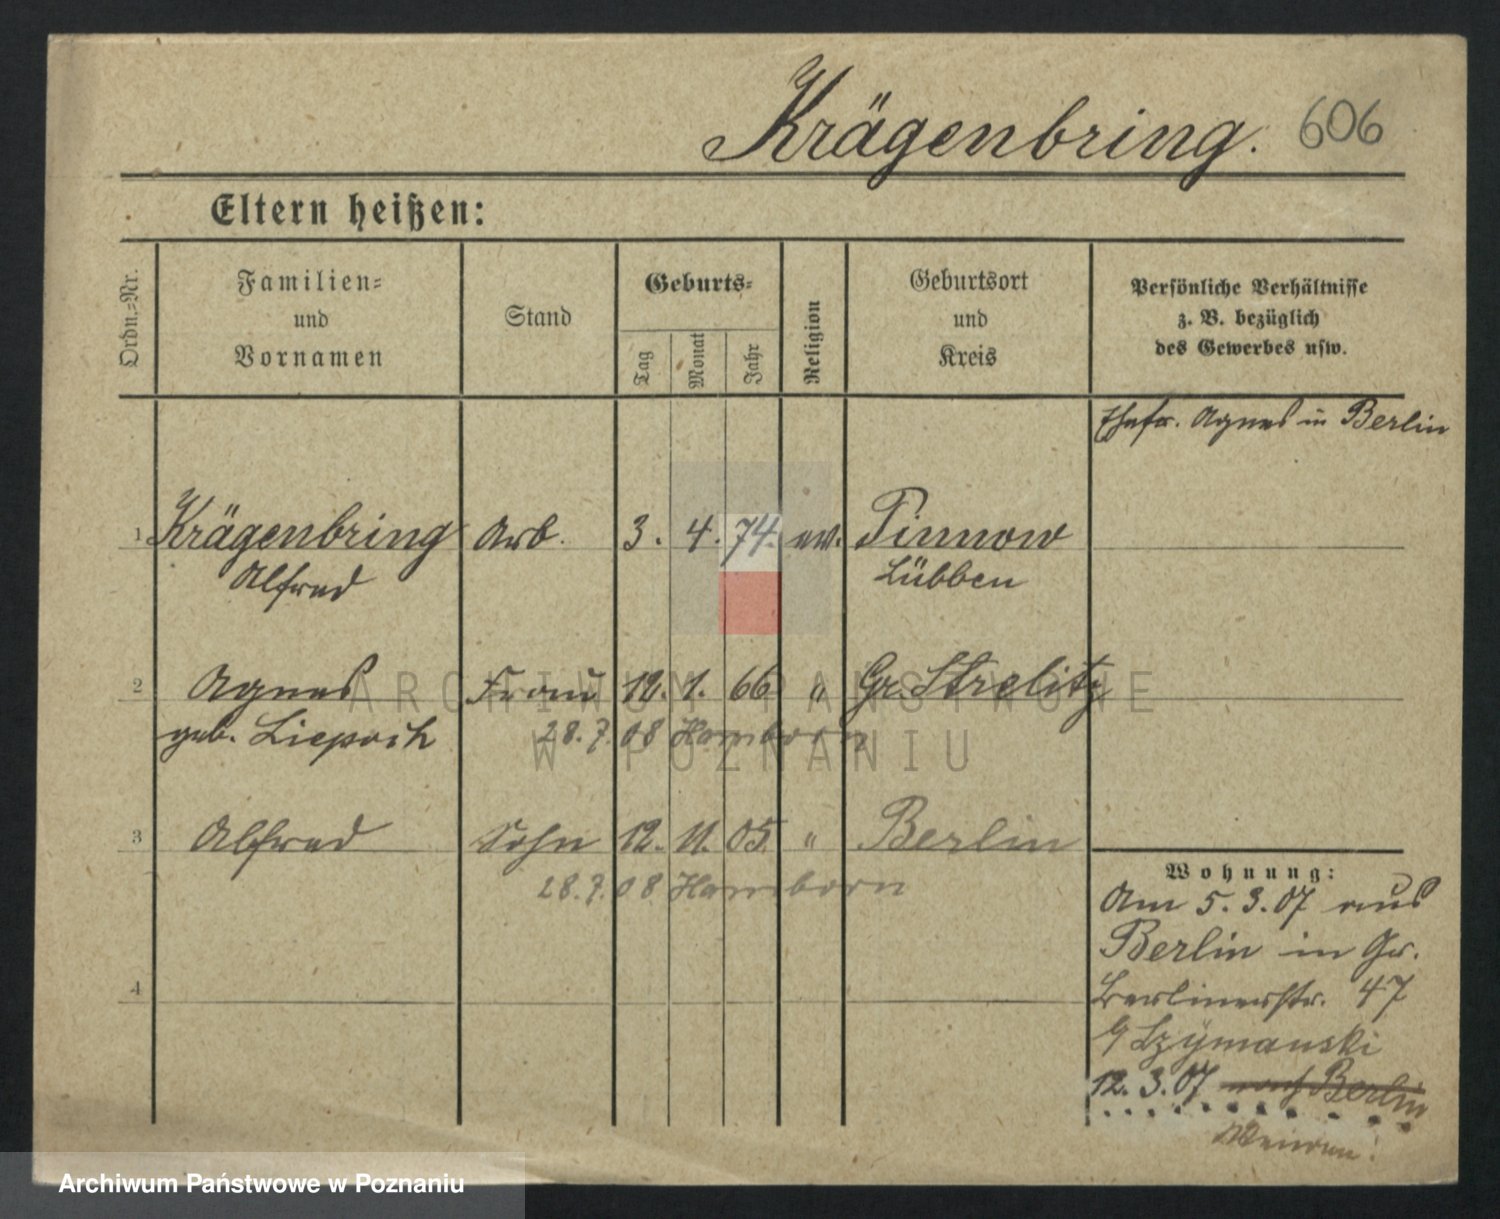 Krägenbring. 606
Eltern heißen:
Ordn.=Nr.
Familien=
und
Vornamen
Stand
Geburts=
Tag
Monat
Jahr
Religion
Geburtsort
und
Kreis
Persönliche Verhältnisse
z. B. bezüglich
des Gewerbes usw.
Ehefr. Agnes in Berlin
1 Krägenbring Arb. 3. 4. 74. ev. Pinnow
Alfred Lübben
2 Agnes Frau 12. 1. 66 " Gr. Strelitz
geb. 28.7.08 Hamborn
3 Alfred Sohn 12. 11. 05. " Berlin
28.7.08 Hamborn
4
Wohnung:
Am 5. 3. 07 aus
Berlin in Gr.
Berlinerstr. 47
Szymanski
12. 3. 07 nach Berlin
ARCHIWUM PAŃSTWOWE
W POZNANIU
Archiwum Państwowe w Poznaniu